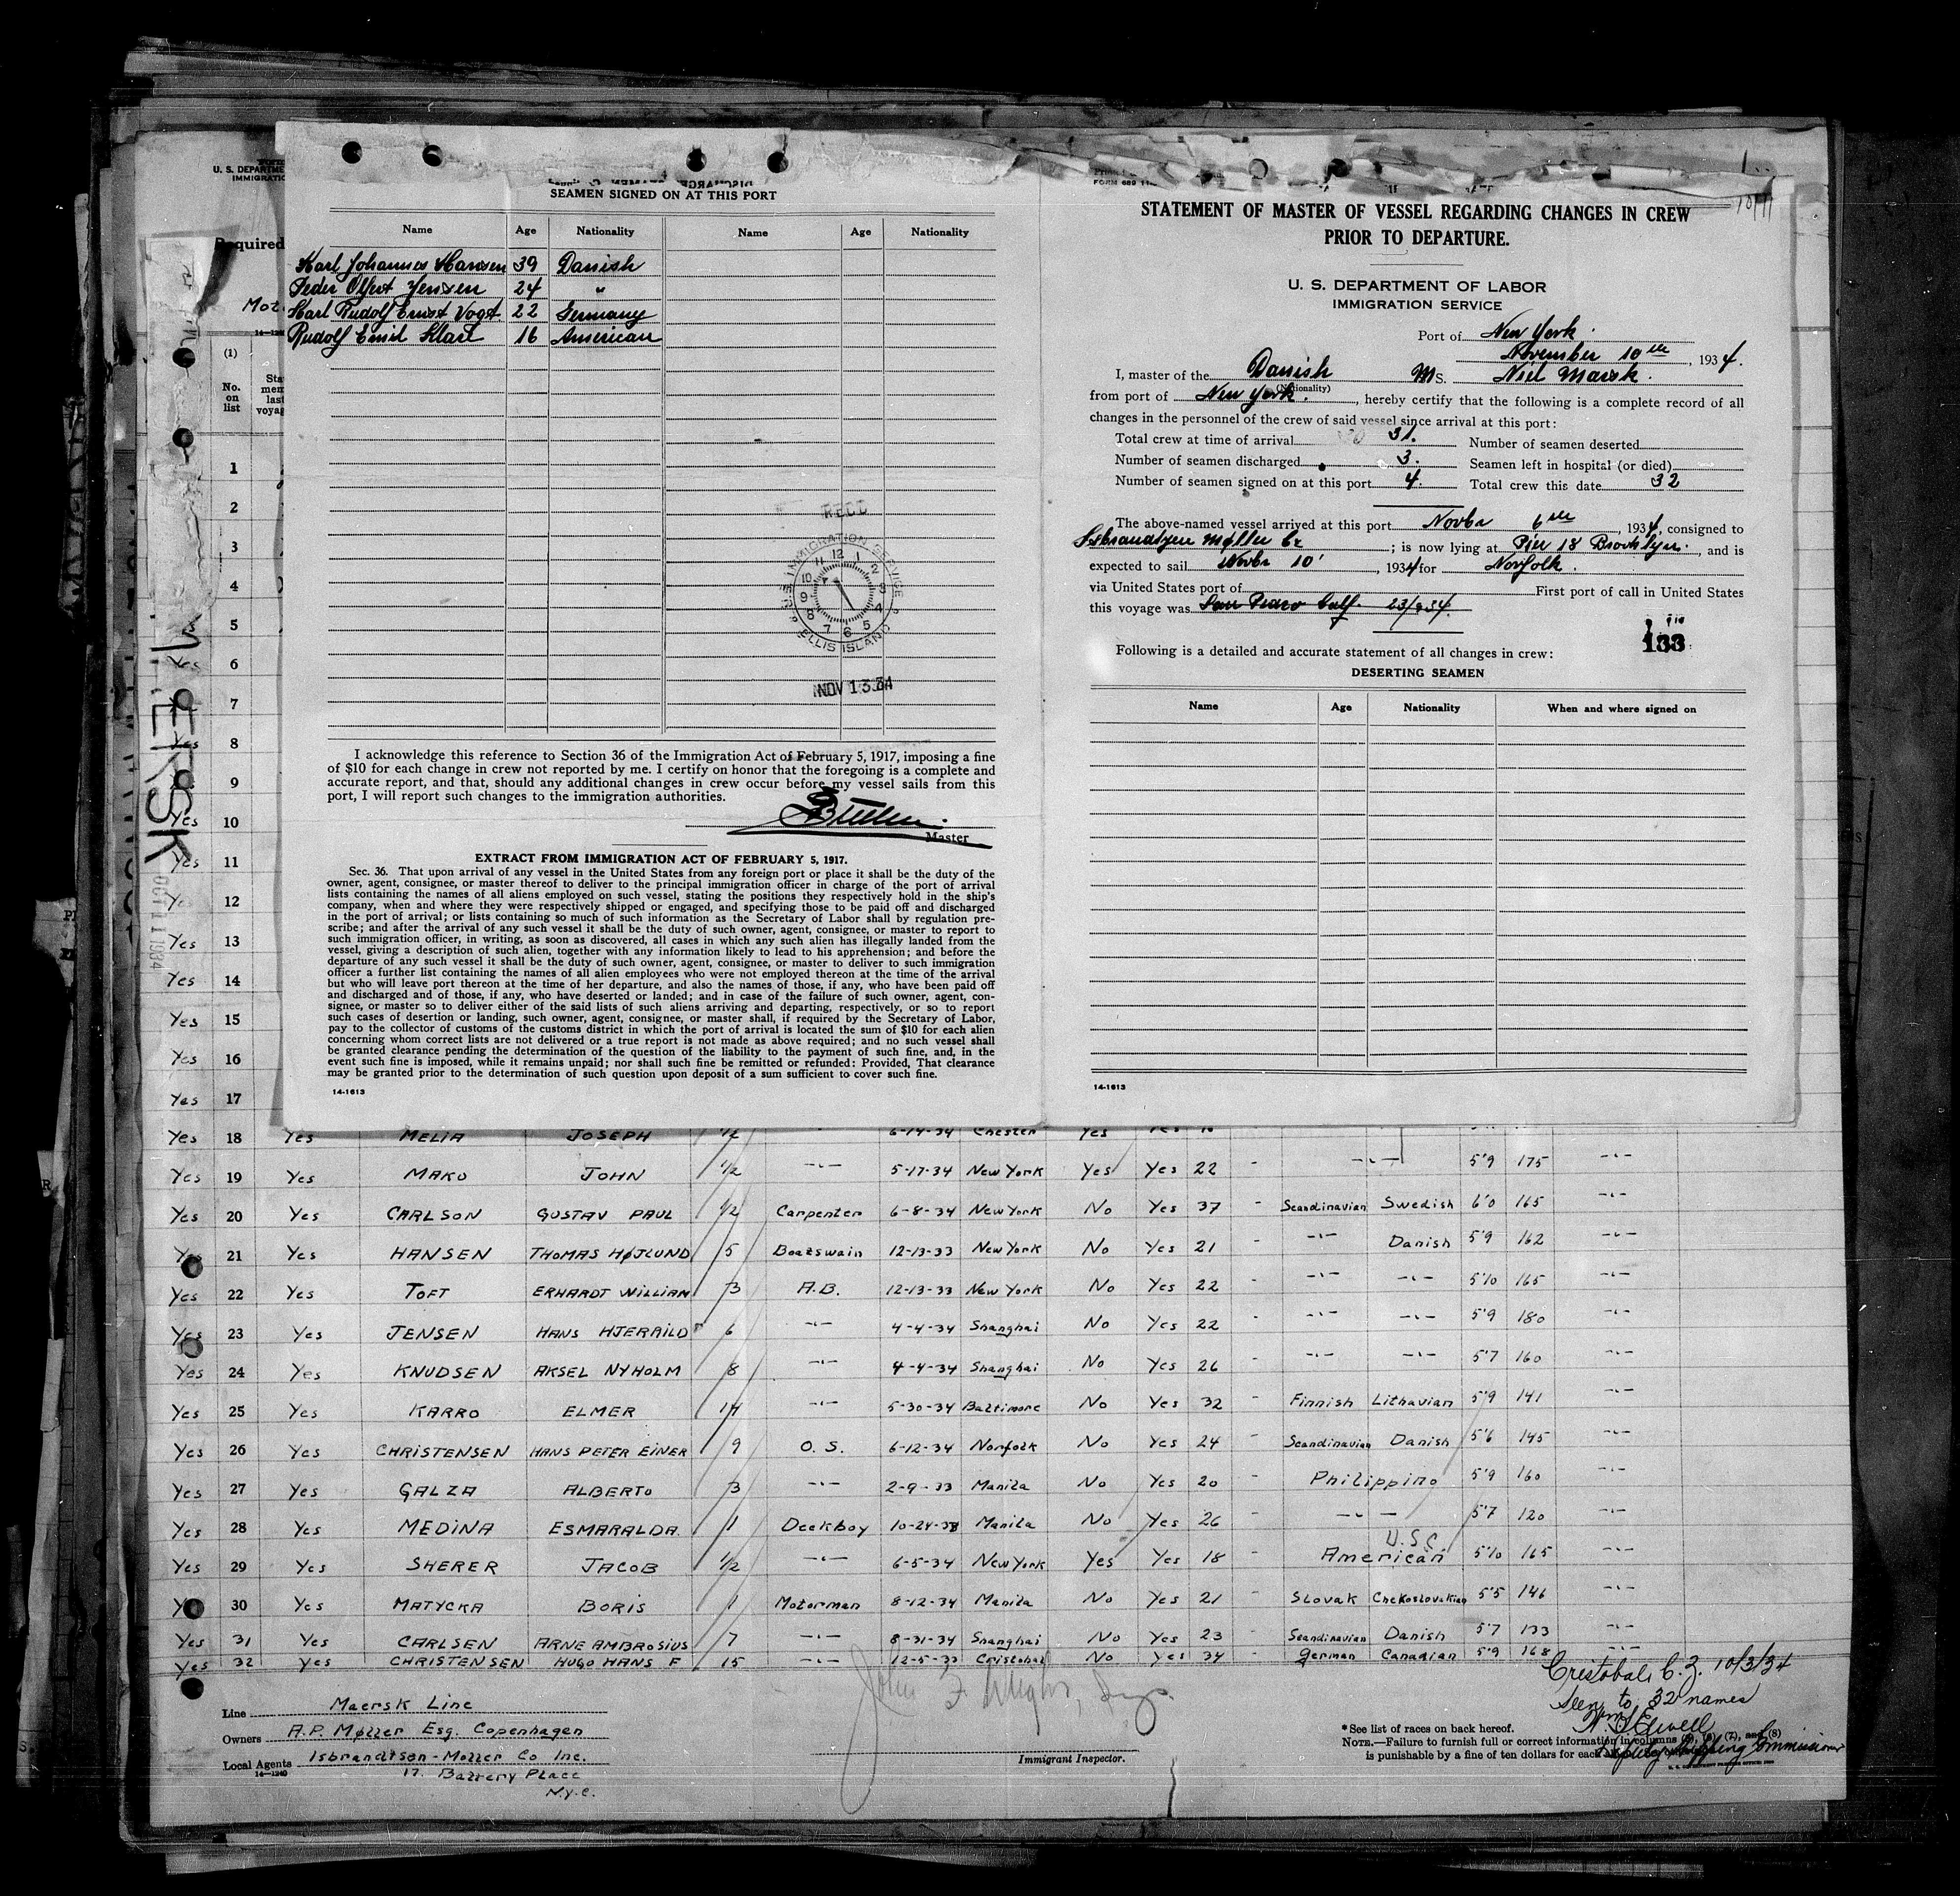 SEAMEN SIGNED ON AT THIS PORT
Name Age Nationality Name Age Nationality
Karl Johannes Hansen 39 Danish
Peder Olfert Jensen 24 "
Karl Rudolf Ernst Vogt. 22 Germany
Rudolf Emil Klare 16 American
RECD
U.S. IMMIGRATION SERVICE
ELLIS ISLAND
NOV 13 34
I acknowledge this reference to Section 36 of the Immigration Act of February 5, 1917, imposing a fine
of $10 for each change in crew not reported by me. I certify on honor that the foregoing is a complete and
accurate report, and that, should any additional changes in crew occur before my vessel sails from this
port, I will report such changes to the immigration authorities.
Master
EXTRACT FROM IMMIGRATION ACT OF FEBRUARY 5, 1917.
Sec. 36. That upon arrival of any vessel in the United States from any foreign port or place it shall be the duty of the
owner, agent, consignee, or master thereof to deliver to the principal immigration officer in charge of the port of arrival
lists containing the names of all aliens employed on such vessel, stating the positions they respectively hold in the ship's
company, when and where they were respectively shipped or engaged, and specifying those to be paid off and discharged
in the port of arrival; or lists containing so much of such information as the Secretary of Labor shall by regulation pre-
scribe; and after the arrival of any such vessel it shall be the duty of such owner, agent, consignee, or master to report to
such immigration officer, in writing, as soon as discovered, all cases in which any such alien has illegally landed from the
vessel, giving a description of such alien, together with any information likely to lead to his apprehension; and before the
departure of any such vessel it shall be the duty of such owner, agent, consignee, or master to deliver to such immigration
officer a further list containing the names of all alien employees who were not employed thereon at the time of the arrival
but who will leave port thereon at the time of her departure, and also the names of those, if any, who have been paid off
and discharged and of those, if any, who have deserted or landed; and in case of the failure of such owner, agent, con-
signee, or master so to deliver either of the said lists of such aliens arriving and departing, respectively, or so to report
such cases of desertion or landing, such owner, agent, consignee, or master shall, if required by the Secretary of Labor,
pay to the collector of customs of the customs district in which the port of arrival is located the sum of $10 for each alien
concerning whom correct lists are not delivered or a true report is not made as above required; and no such vessel shall
be granted clearance pending the determination of the question of the liability to the payment of such fine, and, in the
event such fine is imposed, while it remains unpaid; nor shall such fine be remitted or refunded: Provided, That clearance
may be granted prior to the determination of such question upon deposit of a sum sufficient to cover such fine.
14-1613
STATEMENT OF MASTER OF VESSEL REGARDING CHANGES IN CREW
PRIOR TO DEPARTURE.
U. S. DEPARTMENT OF LABOR
IMMIGRATION SERVICE
Port of New York
November 10th, 1934.
I, master of the Danish MS. Niel Maersk.
(Nationality)
from port of New York., hereby certify that the following is a complete record of all
changes in the personnel of the crew of said vessel since arrival at this port:
Total crew at time of arrival 31. Number of seamen deserted
Number of seamen discharged 3. Seamen left in hospital (or died)
Number of seamen signed on at this port 4. Total crew this date 32
The above-named vessel arrived at this port Novbr 6th, 1934, consigned to
Isbrandtsen Møller Co; is now lying at Pier 18 Brooklyn., and is
expected to sail Novbr 10', 1934 for Norfolk.
via United States port of First port of call in United States
this voyage was San Pedro Calf. 23/9 34.
133
Following is a detailed and accurate statement of all changes in crew:
DESERTING SEAMEN
Name Age Nationality When and where signed on
14-1613
U. S. DEPARTME
IMMIGRATIO
Required
(1)
No. on list
1
2
3
4
5
Yes 6
7
Yes 8
9
Yes 10
Yes 11
Yes 12
Yes 13
Yes 14
Yes 15
Yes 16
Yes 17
OCT 11 1934
Yes 18 Yes MELIA JOSEPH 1/2 6-14-34 Chester Yes Yes
Yes 19 Yes MAKO JOHN 1/2 -"- 5-17-34 New York Yes Yes 22 - -"- 5'9 175 -"-
Yes 20 Yes CARLSON GUSTAV PAUL 1/2 Carpenter 6-8-34 New York No Yes 37 - Scandinavian Swedish 6'0 165 -"-
Yes 21 Yes HANSEN THOMAS HØJLUND 5 Boatswain 12-13-33 New York No Yes 21 - -"- Danish 5'9 162 -"-
Yes 22 Yes TOFT ERHARDT WILLIAM 3 A.B. 12-13-33 New York No Yes 22 - -"- -"- 5'10 165 -"-
Yes 23 Yes JENSEN HANS HJERRILD 6 -"- 4-4-34 Shanghai No Yes 22 -"- -"- 5'9 180 -"-
Yes 24 Yes KNUDSEN AKSEL NYHOLM 8 -"- 4-4-34 Shanghai No Yes 26 - -"- -"- 5'7 160 -"-
Yes 25 Yes KARRO ELMER 14 -"- 5-30-34 Baltimore No Yes 32 - Finnish Lithavian 5'9 141 -"-
Yes 26 Yes CHRISTENSEN HANS PETER EINER 9 O. S. 6-12-34 Norfolk No Yes 24 - Scandinavian Danish 5'6 145 -"-
Yes 27 Yes GALZA ALBERTO 3 -"- 2-9-33 Manila No Yes 20 - Philippino 5'9 160 -"-
Yes 28 Yes MEDINA ESMARALDA. 1 Deckboy 10-24-33 Manila No Yes 26 - -"- 5'7 120 -"-
U.S.C.
Yes 29 Yes SHERER JACOB 1/2 -"- 6-5-34 New York Yes Yes 18 - American 5'10 165 -"-
Yes 30 Yes MATYCKA BORIS 1 Motorman 8-12-34 Manila No Yes 21 - Slovak Chekoslovakian 5'5 146 -"-
Yes 31 Yes CARLSEN ARNE AMBROSIUS 7 -"- 8-31-34 Shanghai No Yes 23 - Scandinavian Danish 5'7 133 -"-
Yes 32 Yes CHRISTENSEN HUGO HANS F 15 -"- 12-5-33 Cristobal No Yes 34 - German Canadian 5'9 168 -"-
Cristobal, C.Z. 10/3/34
Seen to 32 names
Deputy Shipping Commissioner
Line Maersk Line
Owners A.P. Møller Esq. Copenhagen
Local Agents Isbrandtsen-Moller Co Inc.
14-1240
17. Battery Place
N.Y.C.
Immigrant Inspector.
*See list of races on back hereof.
NOTE.—Failure to furnish full or correct information in columns (7), and (8)
is punishable by a fine of ten dollars for each